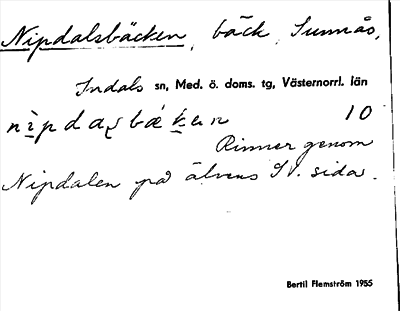 Nipdalsbäcken, bäck, Sunnås,
Indals sn, Med. ö. doms. tg, Västernorrl. län
10
Rinner genom
Nipdalen på älvens SV. sida.
Bertil Flemström 1955